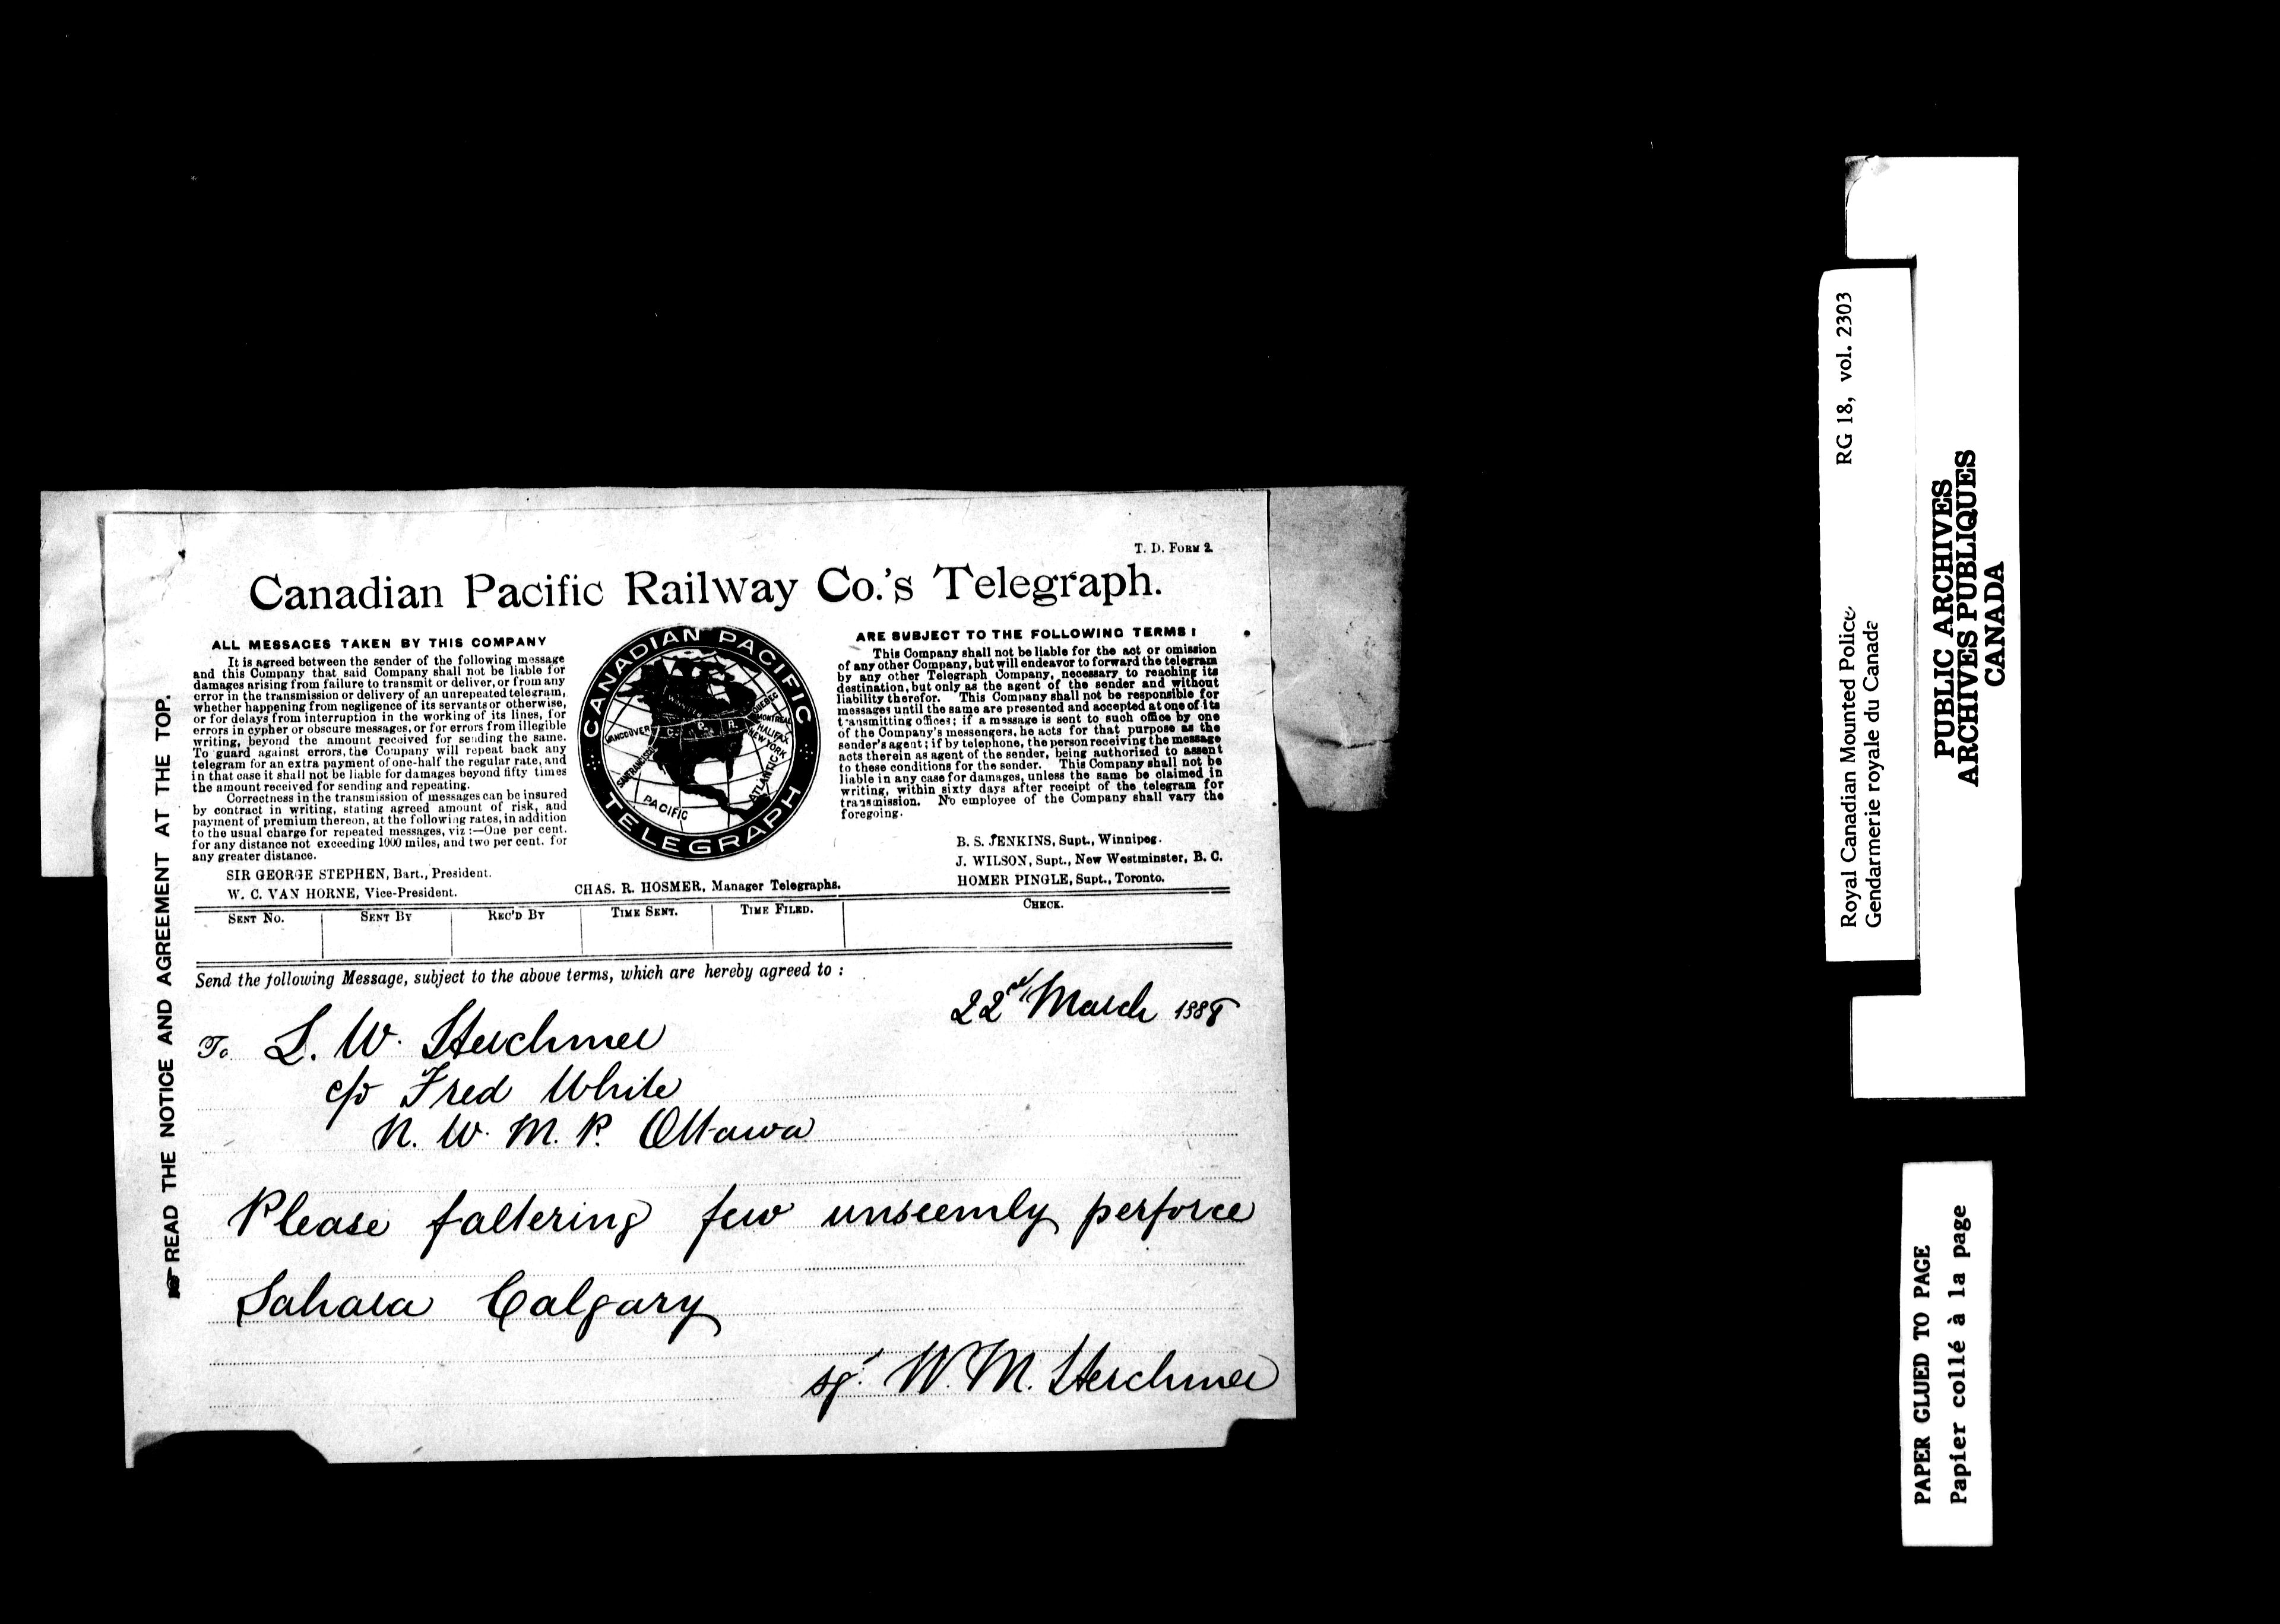 T. D. FORM 2.
Canadian Pacific Railway Co.'s Telegraph.
ALL MESSAGES TAKEN BY THIS COMPANY
It is agreed between the sender of the following message
and this Company that said Company shall not be liable for
damages arising from failure to transmit or deliver, or from any
error in the transmission or delivery of an unrepeated telegram,
whether happening from negligence of its servants or otherwise,
or for delays from interruption in the working of its lines, for
errors in cypher or obscure messages, or for errors from illegible
writing, beyond the amount received for sending the same.
To guard against errors, the Company will repeat back any
telegram for an extra payment of one-half the regular rate, and
in that case it shall not be liable for damages beyond fifty times
the amount received for sending and repeating.
Correctness in the transmission of messages can be insured
by contract in writing, stating agreed amount of risk, and
payment of premium thereon, at the following rates, in addition
to the usual charge for repeated messages, viz :—One per cent.
for any distance not exceeding 1000 miles, and two per cent. for
any greater distance.
SIR GEORGE STEPHEN, Bart., President.
W. C. VAN HORNE, Vice-President.
CANADIAN PACIFIC
TELEGRAPH
VANCOUVER
C. P. R.
QUEBEC
MONTREAL
HALIFAX
NEW YORK
SANFRANCISCO
ATLANTIC
PACIFIC
CHAS. R. HOSMER, Manager Telegraphs.
ARE SUBJECT TO THE FOLLOWING TERMS :
This Company shall not be liable for the act or omission
of any other Company, but will endeavor to forward the telegram
by any other Telegraph Company, necessary to reaching its
destination, but only as the agent of the sender and without
liability therefor. This Company shall not be responsible for
messages until the same are presented and accepted at one of its
transmitting offices; if a message is sent to such office by one
of the Company's messengers, he acts for that purpose as the
sender's agent; if by telephone, the person receiving the message
acts therein as agent of the sender, being authorized to assent
to these conditions for the sender. This Company shall not be
liable in any case for damages, unless the same be claimed in
writing, within sixty days after receipt of the telegram for
transmission. No employee of the Company shall vary the
foregoing.
B. S. JENKINS, Supt., Winnipeg.
J. WILSON, Supt., New Westminster, B. C.
HOMER PINGLE, Supt., Toronto.
SENT NO. SENT BY REC'D BY TIME SENT. TIME FILED. CHECK.
Send the following Message, subject to the above terms, which are hereby agreed to :
22nd March 1888
To L. W. Herchmer
c/o Fred White
N. W. M. P. Ottawa
Please faltering few unseemly perforce
Sahara Calgary
sg. W. M. Herchmer
READ THE NOTICE AND AGREEMENT AT THE TOP.
Royal Canadian Mounted Police RG 18, vol. 2303
Gendarmerie royale du Canada
PUBLIC ARCHIVES
ARCHIVES PUBLIQUES
CANADA
PAPER GLUED TO PAGE
Papier collé à la page